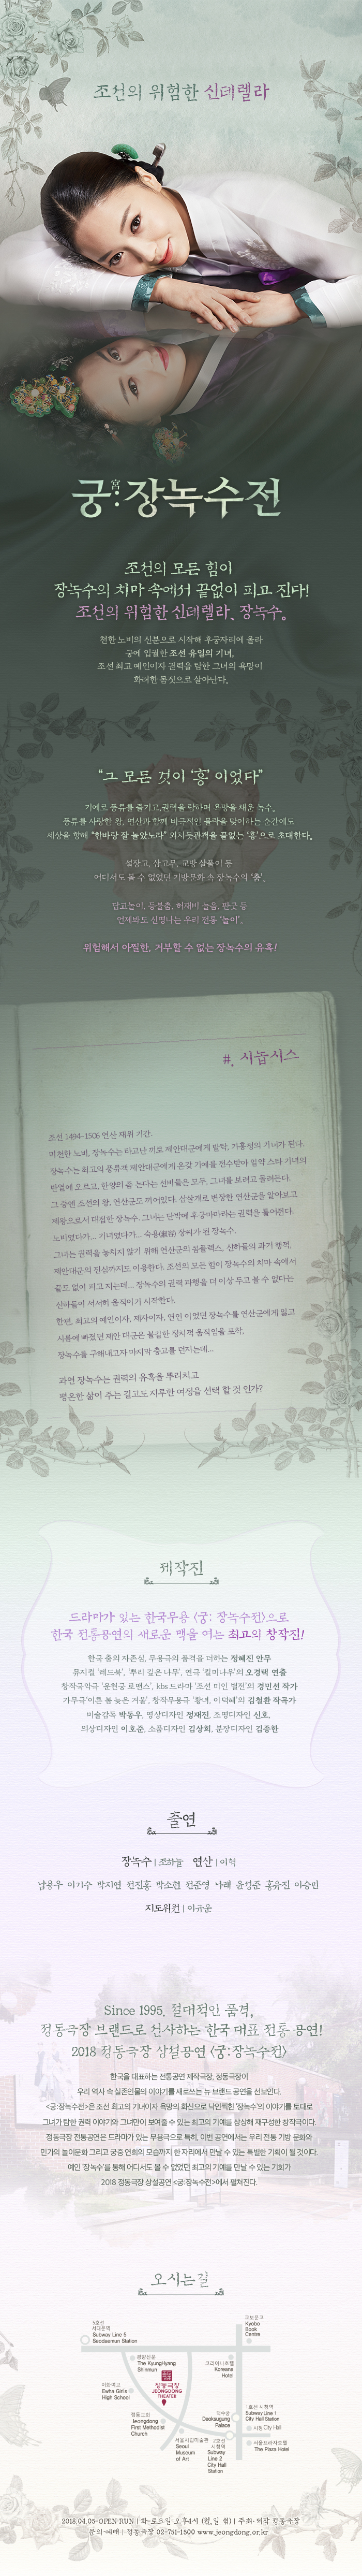 조선의 위험한 신데렐라
궁:장녹수전
宮
조선의 모든 힘이
장녹수의 치마 속에서 끝없이 피고 진다!
조선의 위험한 신데렐라, 장녹수.
천한 노비의 신분으로 시작해 후궁자리에 올라
궁에 입궐한 조선 유일의 기녀,
조선 최고 예인이자 권력을 탐한 그녀의 욕망이
화려한 몸짓으로 살아난다.
“그 모든 것이 ‘흥’ 이었다”
기예로 풍류를 즐기고, 권력을 탐하며 욕망을 채운 녹수.
풍류를 사랑한 왕, 연산과 함께 비극적인 몰락을 맞이하는 순간에도
세상을 향해 “한바탕 잘 놀았노라” 외치듯 관객을 끝없는 ‘흥’으로 초대한다.
설장고, 삼고무, 교방 살풀이 등
어디서도 볼 수 없었던 기방문화 속 장녹수의 ‘춤’,
답교놀이, 등불춤, 허재비 놀음, 판굿 등
언제봐도 신명나는 우리 전통 ‘놀이’.
위험해서 아찔한, 거부할 수 없는 장녹수의 유혹!
#. 시놉시스
조선 1494-1506 연산 재위 기간.
미천한 노비, 장녹수는 타고난 끼로 제안대군에게 발탁, 가흥청의 기녀가 된다.
장녹수는 최고의 풍류객 제안대군에게 온갖 기예를 전수받아 일약 스타 기녀의
반열에 오르고, 한양의 좀 논다는 선비들은 모두, 그녀를 보려고 몰려든다.
그 중엔 조선의 왕, 연산군도 끼어있다. 삽살개로 변장한 연산군을 알아보고
제왕으로서 대접한 장녹수. 그녀는 단박에 후궁마마라는 권력을 틀어쥔다.
노비였다가... 기녀였다가... 숙용(淑容) 장씨가 된 장녹수.
그녀는 권력을 놓치지 않기 위해 연산군의 콤플렉스, 신하들의 과거 행적,
제안대군의 진실까지도 이용한다. 조선의 모든 힘이 장녹수의 치마 속에서
끝도 없이 피고 지는데... 장녹수의 권력 파행을 더 이상 두고 볼 수 없다는
신하들이 서서히 움직이기 시작한다.
한편, 최고의 예인이자, 제자이자, 연인 이었던 장녹수를 연산군에게 잃고
시름에 빠졌던 제안 대군은 불길한 정치적 움직임을 포착,
장녹수를 구해내고자 마지막 충고를 던지는데...
과연 장녹수는 권력의 유혹을 뿌리치고
평온한 삶이 주는 길고도 지루한 여정을 선택 할 것 인가?
제작진
드라마가 있는 한국무용 <궁: 장녹수전>으로
한국 전통공연의 새로운 맥을 여는 최고의 창작진!
한국 춤의 자존심, 무용극의 품격을 더하는 정혜진 안무
뮤지컬 ‘레드북’, ‘뿌리 깊은 나무’, 연극 ‘킬미나우’의 오경택 연출
창작국악극 ‘운현궁 로맨스’, kbs 드라마 ‘조선 미인 별전’의 경민선 작가
가무극‘이른 봄 늦은 겨울’, 창작무용극 ‘황녀, 이덕혜’의 김철환 작곡가
미술감독 박동우, 영상디자인 정재진, 조명디자인 신호,
의상디자인 이호준, 소품디자인 김상희, 분장디자인 김종한
출연
장녹수 | 조하늘 연산 | 이혁
남용우 이기수 박지연 전진홍 박소현 전준영 나래 윤성준 홍유진 이승민
지도위원 | 이규운
Since 1995, 절대적인 품격,
정동극장 브랜드로 선사하는 한국 대표 전통 공연!
2018 정동극장 상설공연 <궁:장녹수전>
한국을 대표하는 전통공연 제작극장, 정동극장이
우리 역사 속 실존인물의 이야기를 새로쓰는 뉴 브랜드 공연을 선보인다.
<궁:장녹수전>은 조선 최고의 기녀이자 욕망의 화신으로 낙인찍힌 ‘장녹수’의 이야기를 토대로
그녀가 탐한 권력 이야기와 그녀만이 보여줄 수 있는 최고의 기예를 상상해 재구성한 창작극이다.
정동극장 전통공연은 드라마가 있는 무용극으로 특히, 이번 공연에서는 우리 전통 기방 문화와
민가의 놀이문화 그리고 궁중 연희의 모습까지 한 자리에서 만날 수 있는 특별한 기획이 될 것이다.
예인 ‘장녹수’를 통해 어디서도 볼 수 없었던 최고의 기예를 만날 수 있는 기회가
2018 정동극장 상설공연 <궁:장녹수전>에서 펼쳐진다.
오시는길
5호선
서대문역
Subway Line 5
Seodaemun Station
경향신문
The KyungHyang
Shinmun
교보문고
Kyobo
Book
Centre
코리아나호텔
Koreana
Hotel
이화여고
Ewha Girl's
High School
정동극장
JEONGDONG
THEATER
정동교회
Jeongdong
First Methodist
Church
덕수궁
Deoksugung
Palace
1호선 시청역
Subway Line 1
City Hall Station
시청 City Hall
서울시립미술관
Seoul
Museum
of Art
2호선
시청역
Subway
Line 2
City Hall
Station
서울프라자호텔
The Plaza Hotel
2018.04.05-OPEN RUN | 화-토요일 오후4시 (월,일 쉼) | 주최·제작 정동극장
문의·예매 | 정동극장 02-751-1500 www.jeongdong.or.kr